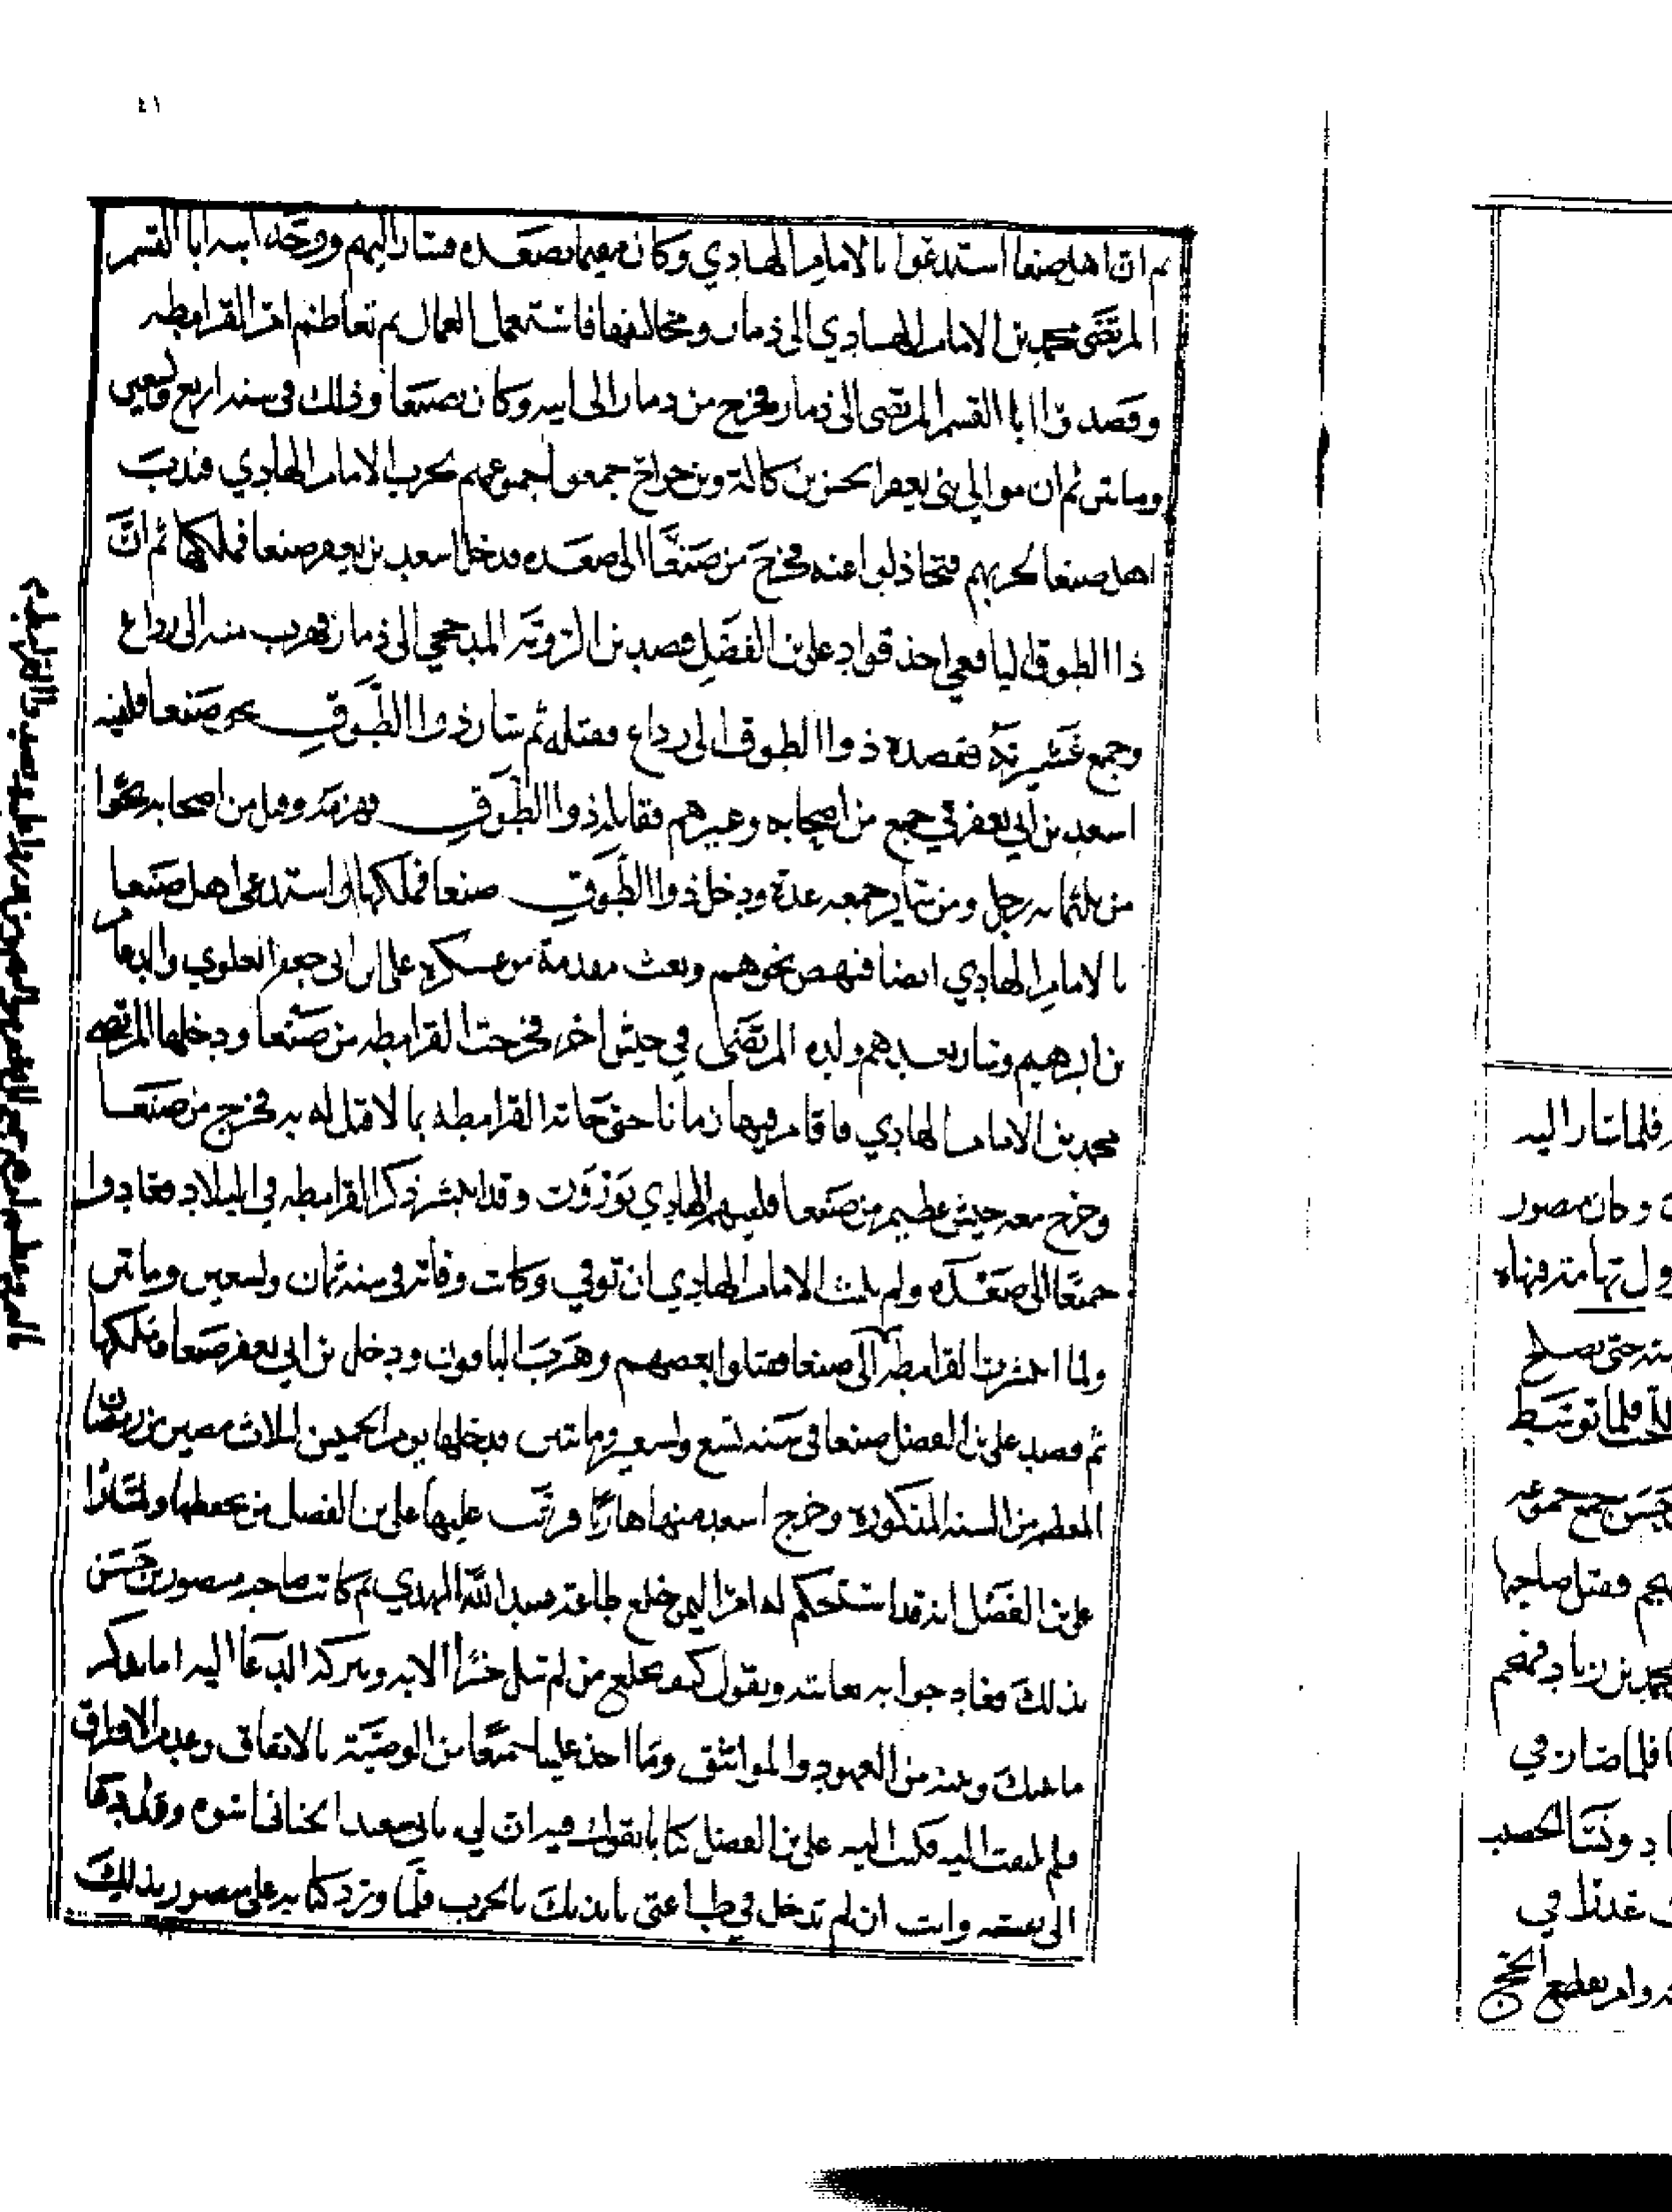 ٤١
ثم ان اهل صنعا استدعوا بالامام الهادي وكان مقيما بصعده فسار اليهم ووجه ابنه ابا القسم
المرتضى محمد بن الامام الهادي الى ذمار ومخاليفها فاستعمل العمال ثم تعاظم امر القرامطه
وقصدوا ابا القسم المرتضى الى ذمار فخرج من ذمار الى ابيه وكان بصنعا وذلك في سنه اربع وتسعين
ومايتين ثم ان موالي بني يعفر الحسن بن كالة وبن جراح جمعوا جموعهم لحرب الامام الهادي فندب
اهل صنعا لحربهم فتخاذلوا عنه فخرج من صنعا الى صعده فدخل اسعد بن يعفر صنعا فملكها ثم ان
ذا الطوق اليافعي احد قواد علي بن الفضل قصد بن الروية المذحجي الى ذمار فهرب منه الى رداع
وجمع عشيرته فقصده ذوا الطوق الى رداع فقتله ثم سار ذوا الطوق نحو صنعا فلقيه
اسعد بن ابي يعفر في جمع من اصحابه وغيرهم فقاتله ذوا الطوق فهزمه وقتل من اصحابه نحوا
من ثلثمايه رجل ومن ساير جمعه عدة ودخل ذوا الطوق صنعا فملكها واستدعى اهل صنعا
بالامام الهادي ايضا فنهض نحوهم وبعث مقدمة من عسكره علي بن ابي جعفر العلوي والدعام
بن ابرهيم وسار بعدهم ولده المرتضى في جيش اخر فخرجت القرامطه من صنعا ودخلها المرتضى
محمد بن الامام الهادي فاقام فيها زمانا حتى جاته القرامطه بما لا قبل له به فخرج من صنعا
وخرج معه جيش عظيم من صنعا فلقيهم الهادي بورورت وقد انتشر ذكر القرامطه في البلاد فعادوا
جميعا الى صعده ولم يلبث الامام الهادي ان توفي وكانت وفاته في سنه ثمان وتسعين ومايتين
ولما انتشرت القرامطه الى صنعا فقتلوا بعضهم وهرب الباقون ودخل بن ابي يعفر صنعا وتملكها
ثم قصد علي بن الفضل صنعا في سنه تسع وتسعين ومايتين فدخلها يوم الخميس لثلاث مضين من رمضان
المعظم من السنه المذكوره وخرج اسعد منها هاربا ورتب عليها علي بن الفضل من يحفظها ولما راا
علي بن الفضل انه قد استحكم له امر اليمن خلع طاعة عبيد الله المهدي ثم كاتب صاحبه منصور بن حسن
بذلك فعاد جوابه يعاتبه ويقول كيف تخلع من لم تنل خيرا الا به وببركة الدعا اليه اما تذكر
ما بينك وبينه من العهود والمواثيق وما اخذ علينا جميعا من الوصية بالاتفاق وعدم الافتراق
فلم يلتفت اليه فكتب اليه علي بن الفضل كتابا يقول فيه ان لي بابي سعيد الجنابي اسوه وقد دعا
الى نفسه وانت ان لم تدخل في طاعتي نابذتك بالحرب فلما ورد كتابه على منصور بذلك
فلما سار اليه
وكان منصور
حتى يصلح
فلما توسط
حسن جمع جموعه
فقتل صاحبها
محمد بن زياد
فلما صار في